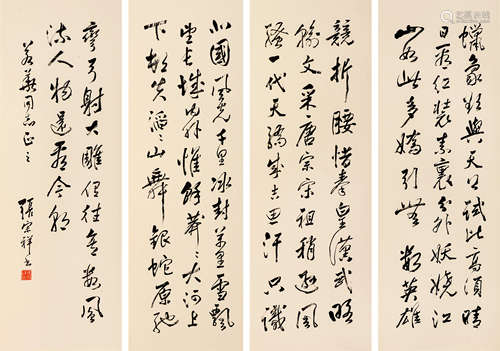 北國風光千里冰封萬里雪飄
望長城內外惟餘莽〻大河上
下頓失滔〻山舞銀蛇原馳
蠟象欲與天公試比高須晴
日看紅裝素裹分外妖嬈江
山如此多嬌引無數英雄
競折腰惜秦皇漢武略
輸文采唐宗宋祖稍遜風
騷一代天驕成吉思汗只識
彎弓射大雕俱往矣數風
流人物還看今朝
若華同志正之
張宗祥書